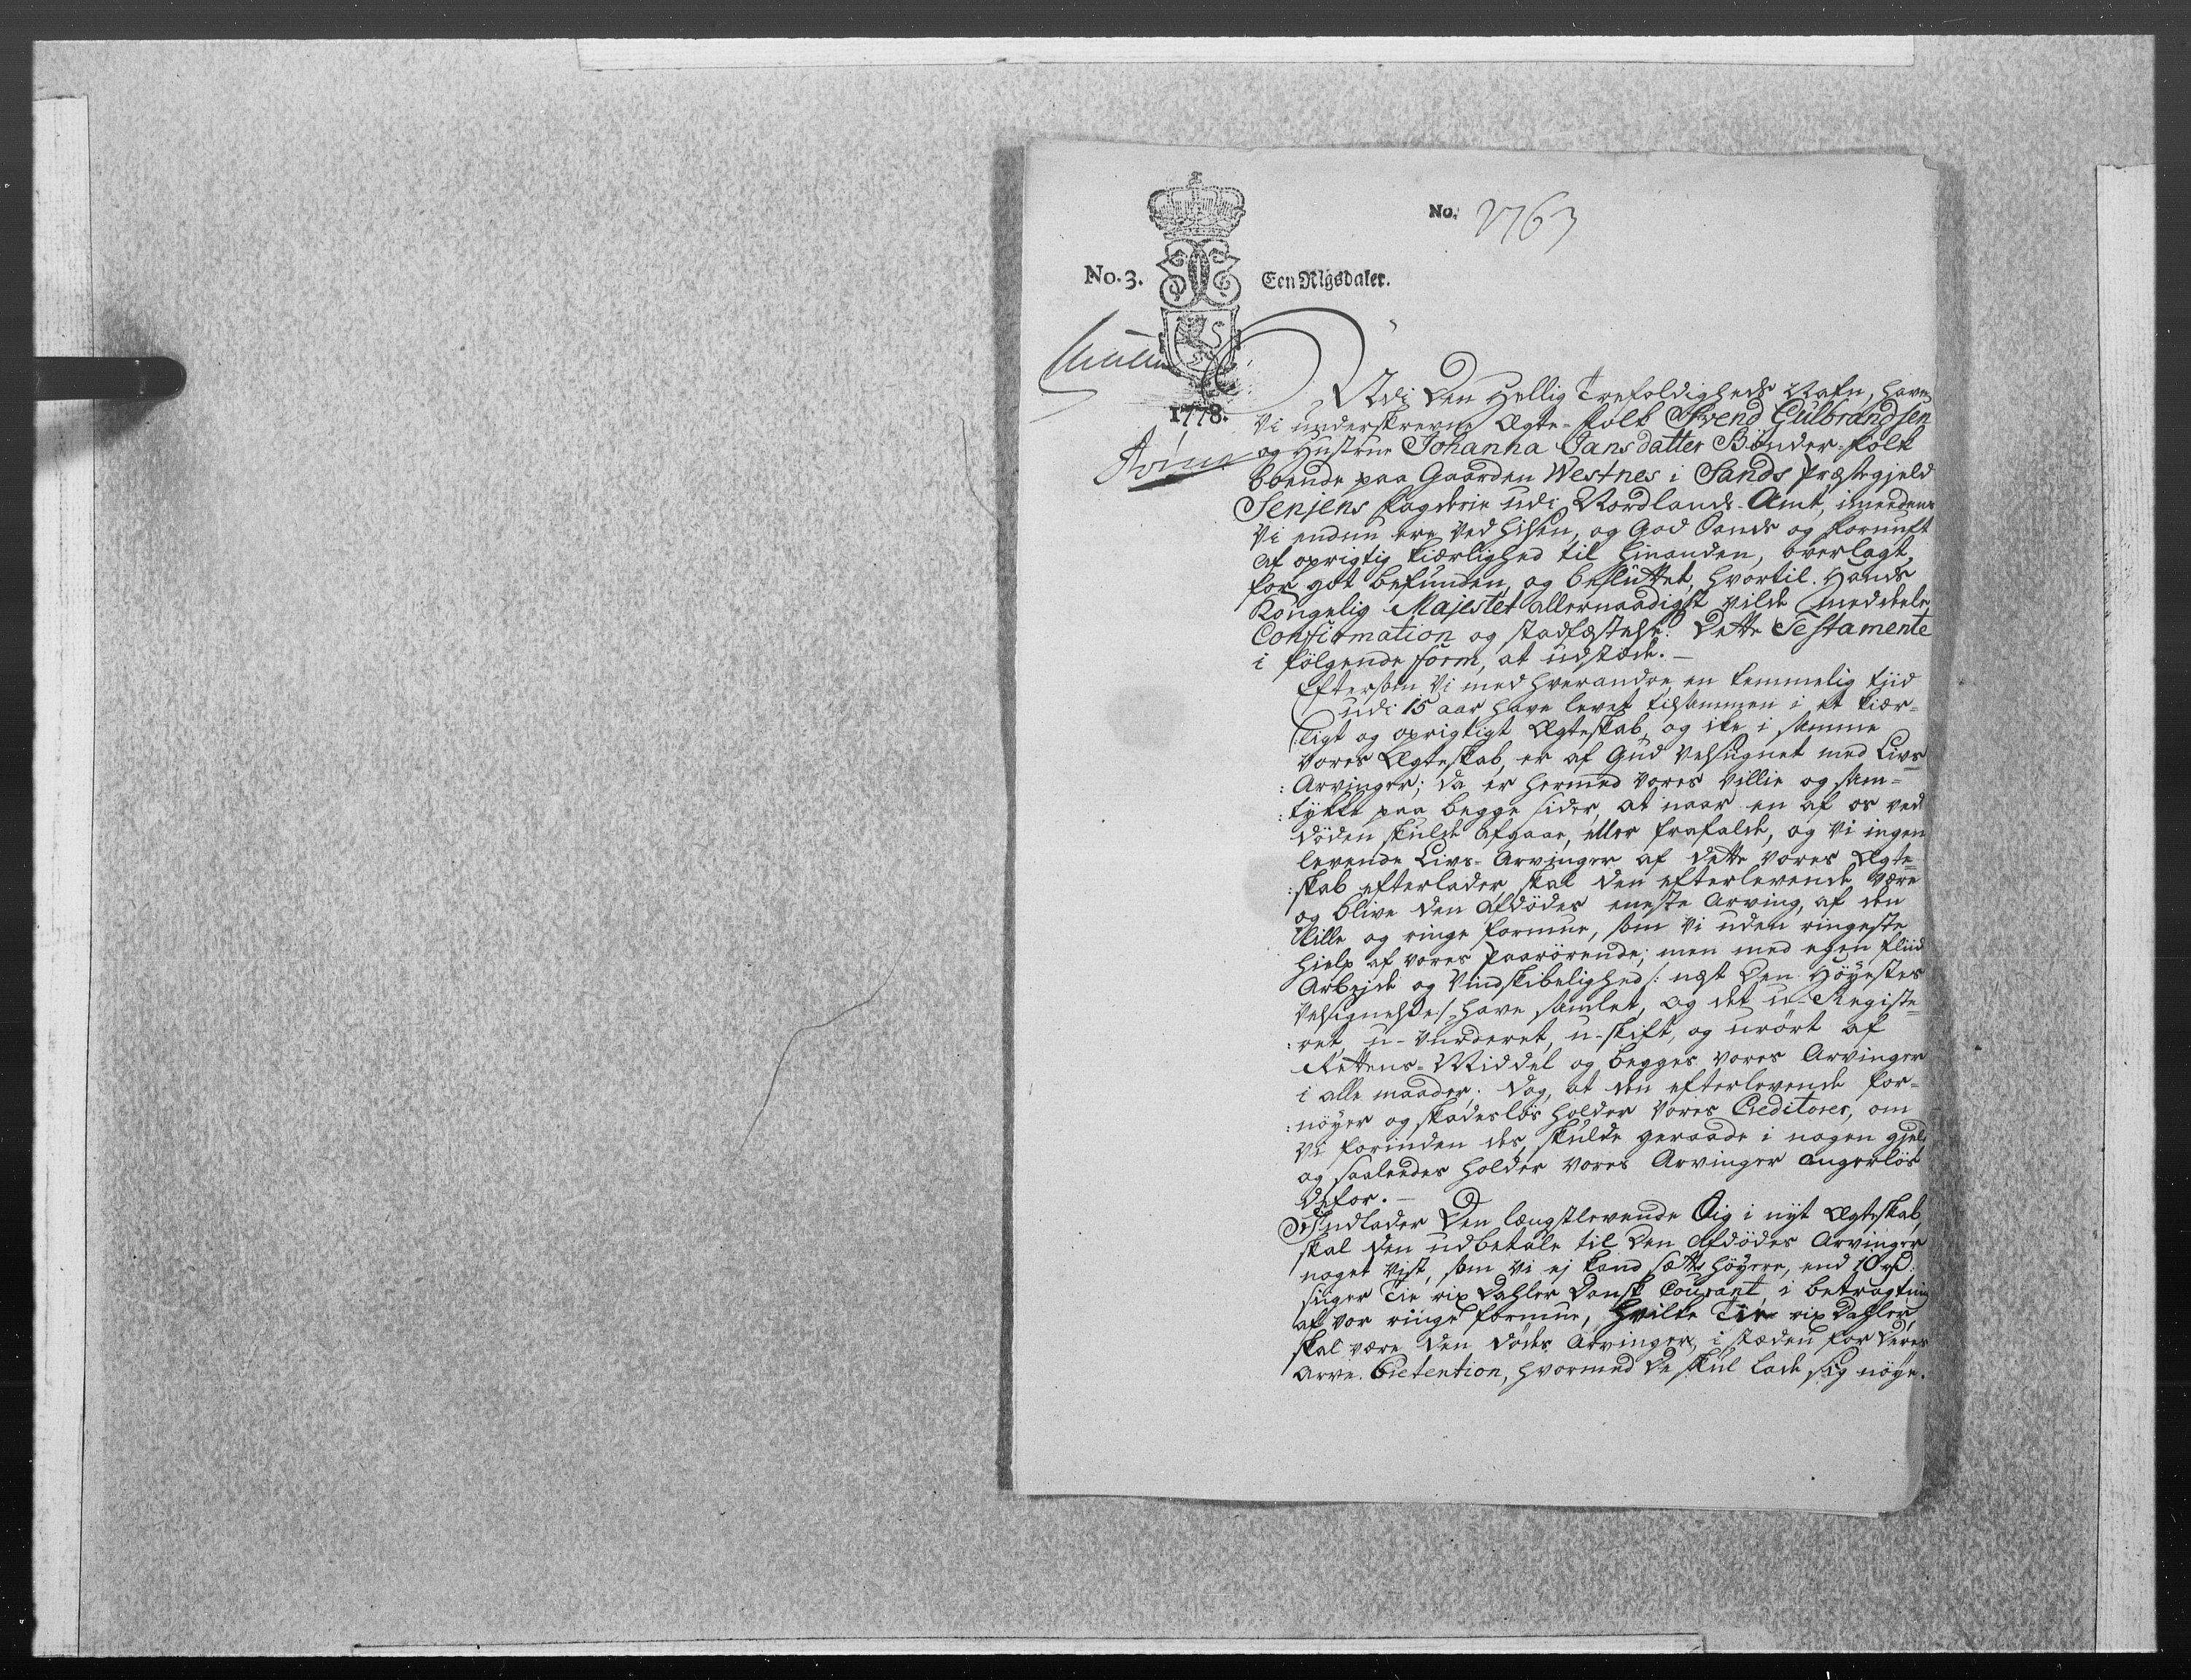 No. 2763
No. 3. Een Rigsdaler.
1778.
Udi Den Hellig Trefoldigheds Nafn, have
Vi underskrevne Ægte-folk Svend Gulbrandsen
og Hustrue Johanna Jansdatter Bönder-folk
boende paa Gaarden Westnes i Sands Præstegjeld
Senjens Fogderie udi Nordlands-Amt, imeedens
Vi endnu ere ved hilsen, og God Sands og fornuft
af oprigtig Kiærlighed til hinanden, overlagt,
for got befunden, og besluttet, hvortil Hands
Kongelig Majestet allernaadigst vilde meddeele
Confirmation og stadfæstelse: Dette Testamente
i fölgende form, at udstæde. —
Eftersom Vi med hverandre en temmelig tiid
udi 15 aar have levet tilsammen i et kiær-
:ligt og oprigtigt Ægteskab, og ike i samme
Vores Ægteskab, er af Gud velsignet med Livs
:Arvinger; da er hermed vores villie og sam-
:tykke paa begge sider, at naar en af os ved
döden skulde afgaae, eller frafalde, og Vi ingen
levende Livs-Arvinger af dette vores Ægte-
:skab efterlader, skal den efterlevende være
og blive den afdödes eneste Arving, af den
lille og ringe formue, som Vi uden ringeste
hielp af vores Paarörende; men med egen fliid
Arbejde og Vindskibelighed /: næst Den Höyestes
Velsignelse :/ have samlet, og det u-Registe-
:ret, u-vurderet, u-skift, og urört af
Rettens-Middel og begges vores Arvinger
i alle maader; dog, at den efterlevende for-
:nöyer og skadeslös holder Vores Creditores, om
Vi forinden des, skulde geraade i nogen gjeld
og saaleedes holder vores Arvinger angerlös
defor. —
Indlader Den længstlevende Sig i nyt Ægteskab,
skal den udbetale til den afdödes Arvinger
noget vist, som Vi ej kand sætte höyere, end 10 rd.
siiger Tie rix Dahler Dansk Courant, i betragtning
af vor ringe formue, hvilke Tie rix Dahler,
skal være den dödes Arvinger, i stæden for deres
Arve-Prætention, hvormed de skal lade sig nöye.